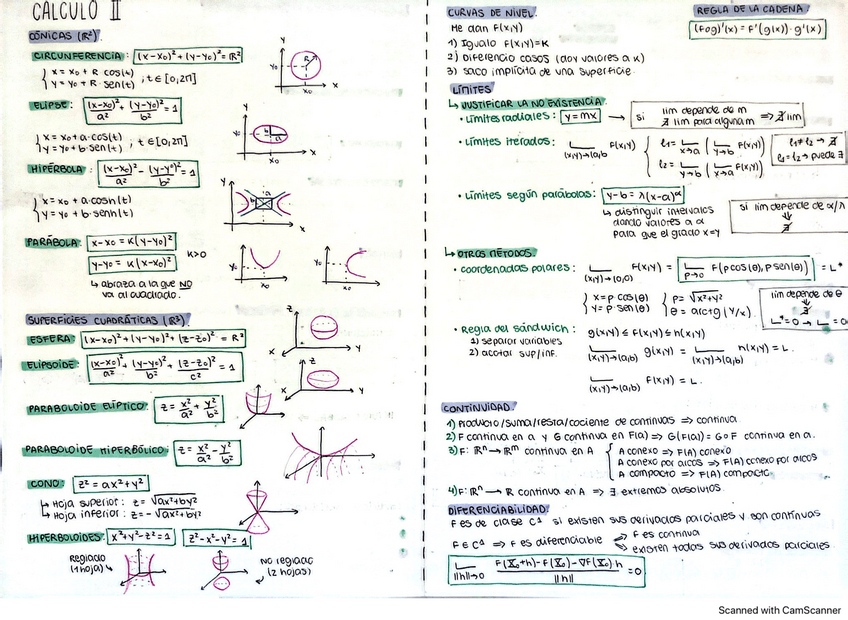 CALCULO II
CÓNICAS (R²)
CIRCUNFERENCIA: (x-x₀)²+(y-y₀)²=R²
{ x = x₀+R cos(t)
{ y = y₀+R sen(t) ; t∈[0,2π]
ELIPSE: (x-x₀)²/a² + (y-y₀)²/b² = 1
{ x = x₀+a·cos(t)
{ y = y₀+b·sen(t) ; t∈[0,2π]
HIPÉRBOLA: (x-x₀)²/a² - (y-y₀)²/b² = 1
{ x = x₀+a·cosh(t)
{ y = y₀+b·senh(t)
PARÁBOLA: x-x₀ = K(y-y₀)²
y-y₀ = K(x-x₀)² K>0
↳ abraza a la que NO
va al cuadrado.
SUPERFICIES CUADRÁTICAS (R³)
ESFERA: (x-x₀)²+(y-y₀)²+(z-z₀)² = R²
ELIPSOIDE: (x-x₀)²/a² + (y-y₀)²/b² + (z-z₀)²/c² = 1
PARABOLOIDE ELÍPTICO: z = x²/a² + y²/b²
PARABOLOIDE HIPERBÓLICO: z = x²/a² - y²/b²
CONO: z² = ax²+y²
↳ Hoja superior: z = √ax²+by²
↳ Hoja inferior: z = -√ax²+by²
HIPERBOLOIDES: x²+y²-z²=1 z²-x²-y²=1
Reglado
(1 hoja)
NO reglado
(2 hojas)
CURVAS DE NIVEL.
Me dan F(x,y)
1) Igualo F(x,y)=K
2) Diferencio casos (doy valores a K)
3) saco implícita de una superficie.
REGLA DE LA CADENA
(f∘g)'(x) = f'(g(x))·g'(x)
LÍMITES
↳ JUSTIFICAR LA NO EXISTENCIA:
• Límites radiales: y=mx → si lim depende de m
∄ lim para algún m ⇒ ∄ lim
• Límites iterados: lim (x,y)→(a,b) F(x,y) { l₁ = lim x→a ( lim y→b F(x,y))
l₂ = lim y→b ( lim x→a F(x,y))
l₁≠l₂ → ∄
l₁=l₂ → puede ∃
• Límites según parábolas: y-b = λ(x-a)^α
↳ distinguir intervalos
dando valores a α
para que el grado x=y
si lim depende de α/λ
⇓
∄
↳ OTROS MÉTODOS.
• coordenadas polares: lim (x,y)→(0,0) F(x,y) = lim ρ→0 F(ρcos(θ), ρsen(θ)) = L*
{ x = ρ cos(θ)
{ y = ρ sen(θ)
{ ρ = √x²+y²
{ θ = arctg(y/x)
lim depende de θ
∄
• Regla del sándwich: g(x,y) ≤ F(x,y) ≤ h(x,y)
1) separar variables
2) acotar sup/inf.
lim (x,y)→(a,b) g(x,y) = lim (x,y)→(a,b) h(x,y) = L
lim (x,y)→(a,b) F(x,y) = L.
CONTINUIDAD.
1) Producto/suma/resta/cociente de continuas ⇒ continua.
2) F continua en a y G continua en F(a) ⇒ G(F(a)) = G∘F continua en a.
3) F: Rⁿ → Rᵐ continua en A { A conexo ⇒ F(A) conexo
A conexo por arcos ⇒ F(A) conexo por arcos
A compacto ⇒ F(A) compacto
4) F: Rⁿ → R continua en A ⇒ ∃ extremos absolutos.
DIFERENCIABILIDAD.
F es de clase C¹ si existen sus derivadas parciales y son continuas
F∈C¹ ⇒ F es diferenciable ⇒ F es continua
⇒ existen todas sus derivadas parciales.
lim ||h||→0 F(X₀+h)-F(X₀)-∇F(X₀)·h / ||h|| = 0
Scanned with CamScanner